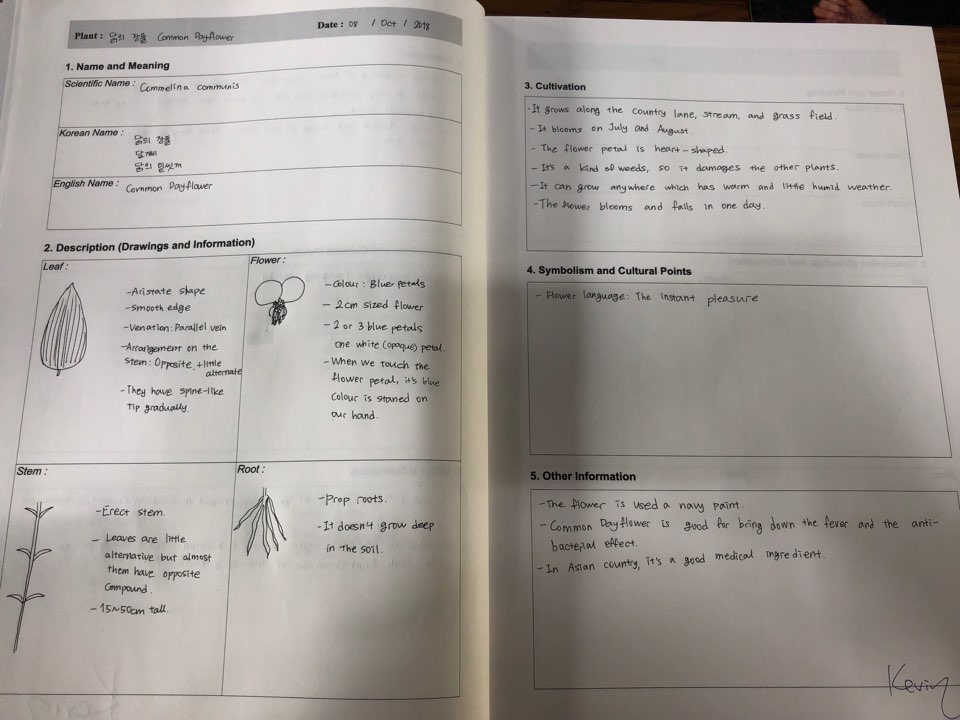 Plant : 닭의 장풀 Common Dayflower
Date : 08 / Oct / 2018
1. Name and Meaning
Scientific Name : Commelina communis
Korean Name : 닭의 장풀
달개비
닭의 밑씻개
English Name : Common Dayflower
2. Description (Drawings and Information)
Leaf :
-Aristate shape
-smooth edge
-Venation: Parallel vein
-Arrangement on the
stem: Opposite, +little
alternate
-They have spine-like
Tip gradually.
Flower :
-Colour : Blue petals
- 2cm sized flower
- 2 or 3 blue petals
one white (opaque) petal.
-When we touch the
flower petal, it's blue
colour is staned on
our hand.
Stem :
-Erect stem.
- Leaves are little
alternative but almost
them have opposite
compound.
-15~50cm tall.
Root :
-Prop roots.
-It doesn't grow deep
in the soil.
3. Cultivation
-It grows along the country lane, stream, and grass field.
-It blooms on July and August.
- The flower petal is heart-shaped.
- It's a kind of weeds, so it damages the other plants.
-It can grow anywhere which has warm and little humid weather.
-The flower blooms and falls in one day.
4. Symbolism and Cultural Points
- Flower language: The instant pleasure
5. Other Information
-The flower is used a navy paint.
- Common Dayflower is good for bring down the fever and the anti-
bacterial effect.
-In Asian country, it's a good medical ingredient.
Kevin